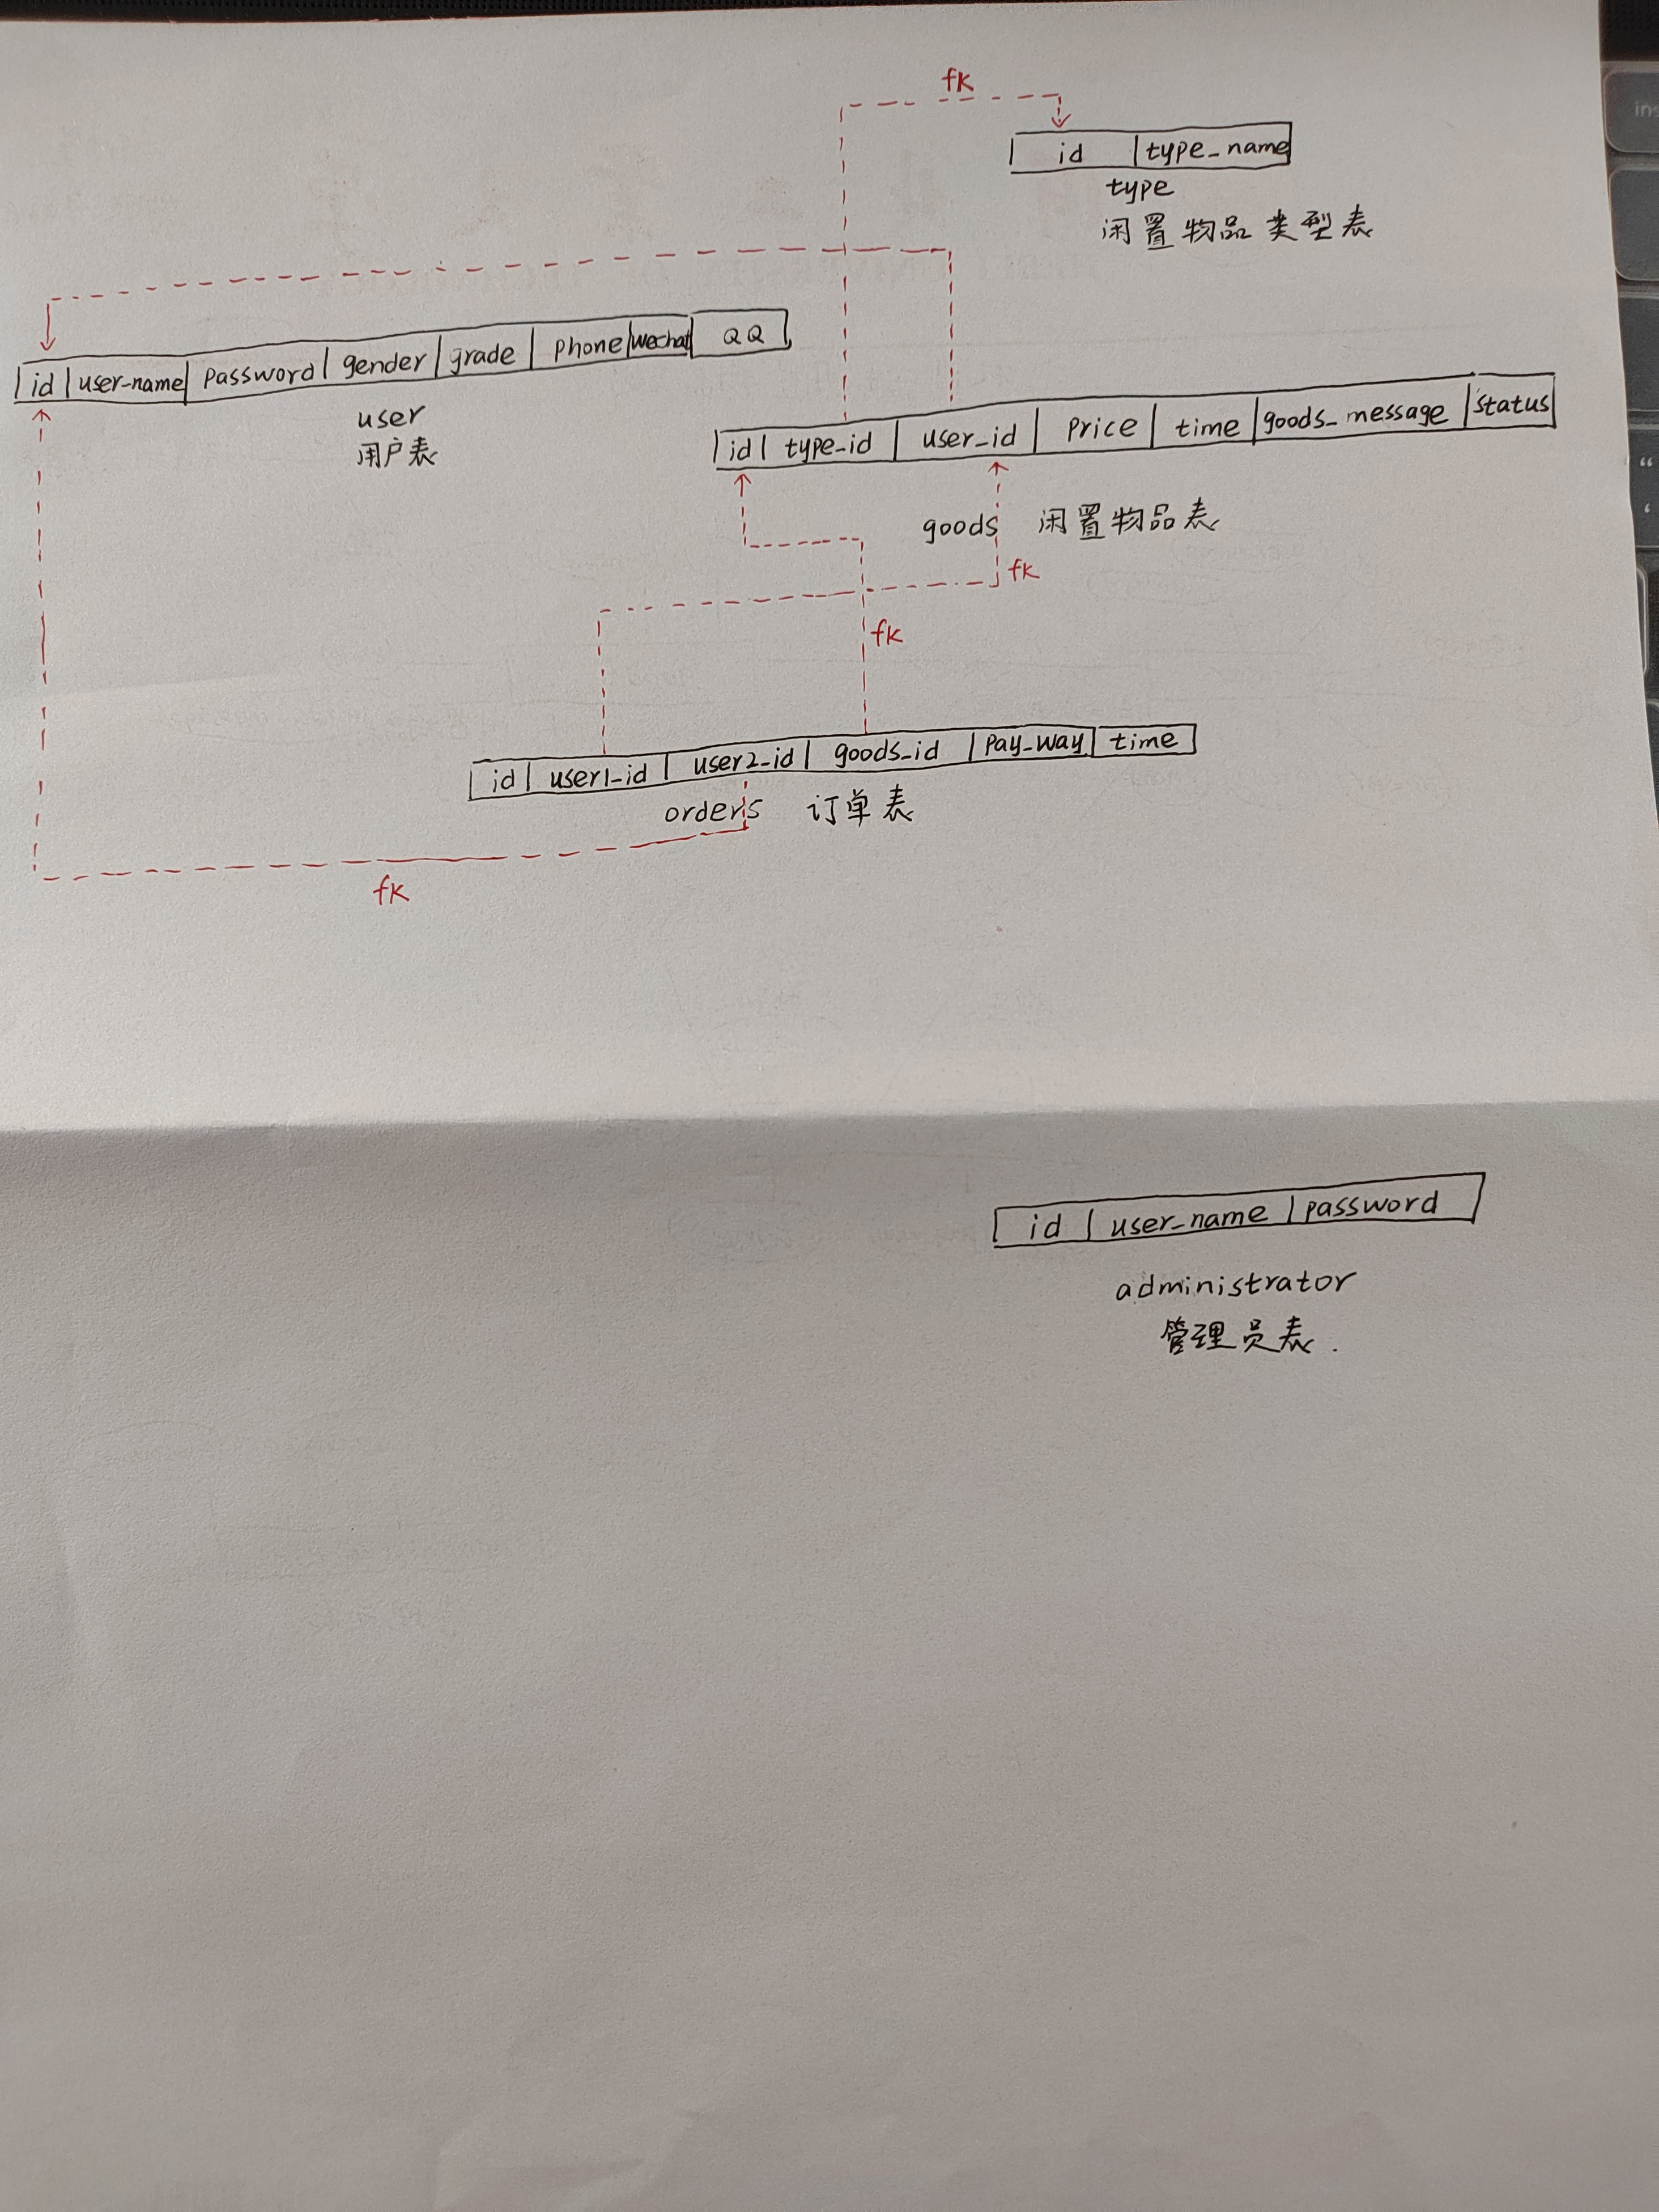 fk
id type_name
type
闲置物品类型表
id user-name password gender grade phone wechat QQ
user
用户表
id type_id user_id price time goods_message status
goods 闲置物品表
fk
fk
id user1_id user2_id goods_id pay_way time
orders 订单表
fk
id user_name password
administrator
管理员表.
ins
“
‘